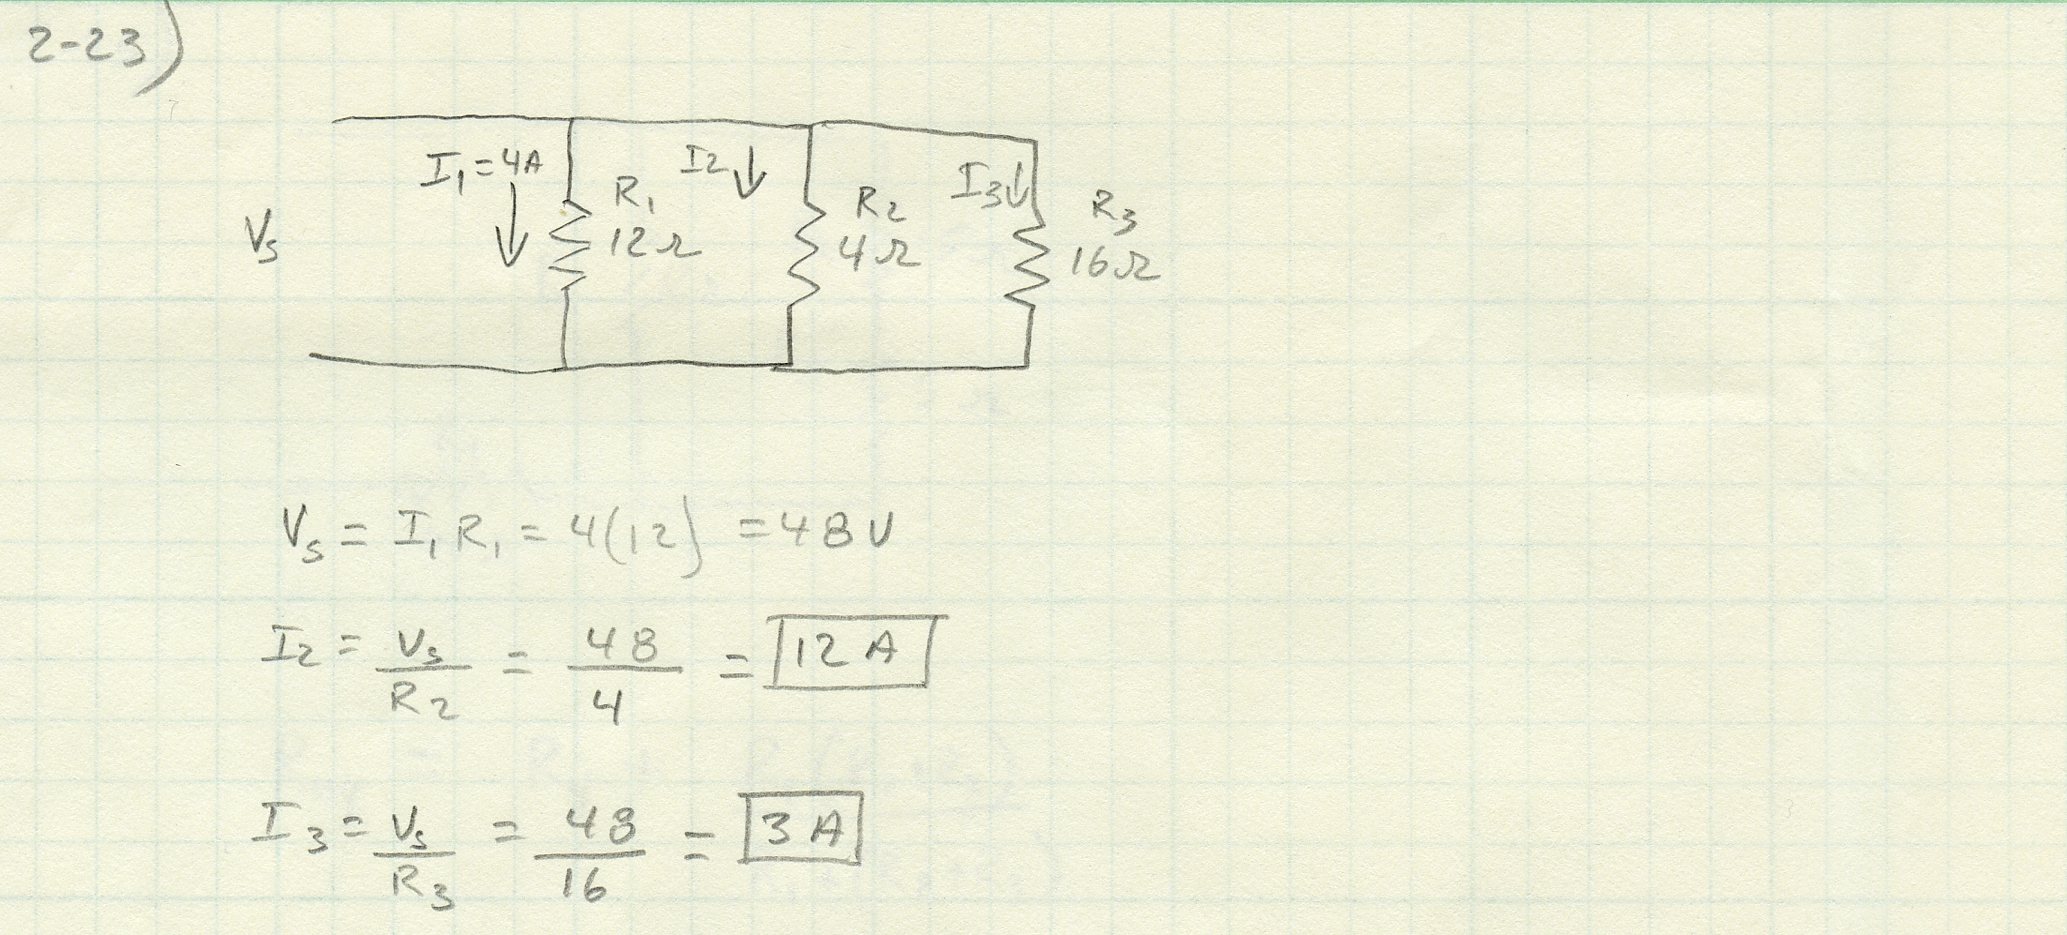 2-23)
I₁=4A
I2
I3
R₁
12Ω
R2
4Ω
R3
16Ω
Vs
Vs = I₁ R₁ = 4(12) = 48V
I2 = Vs/R2 = 48/4 = 12 A
I3 = Vs/R3 = 48/16 = 3 A